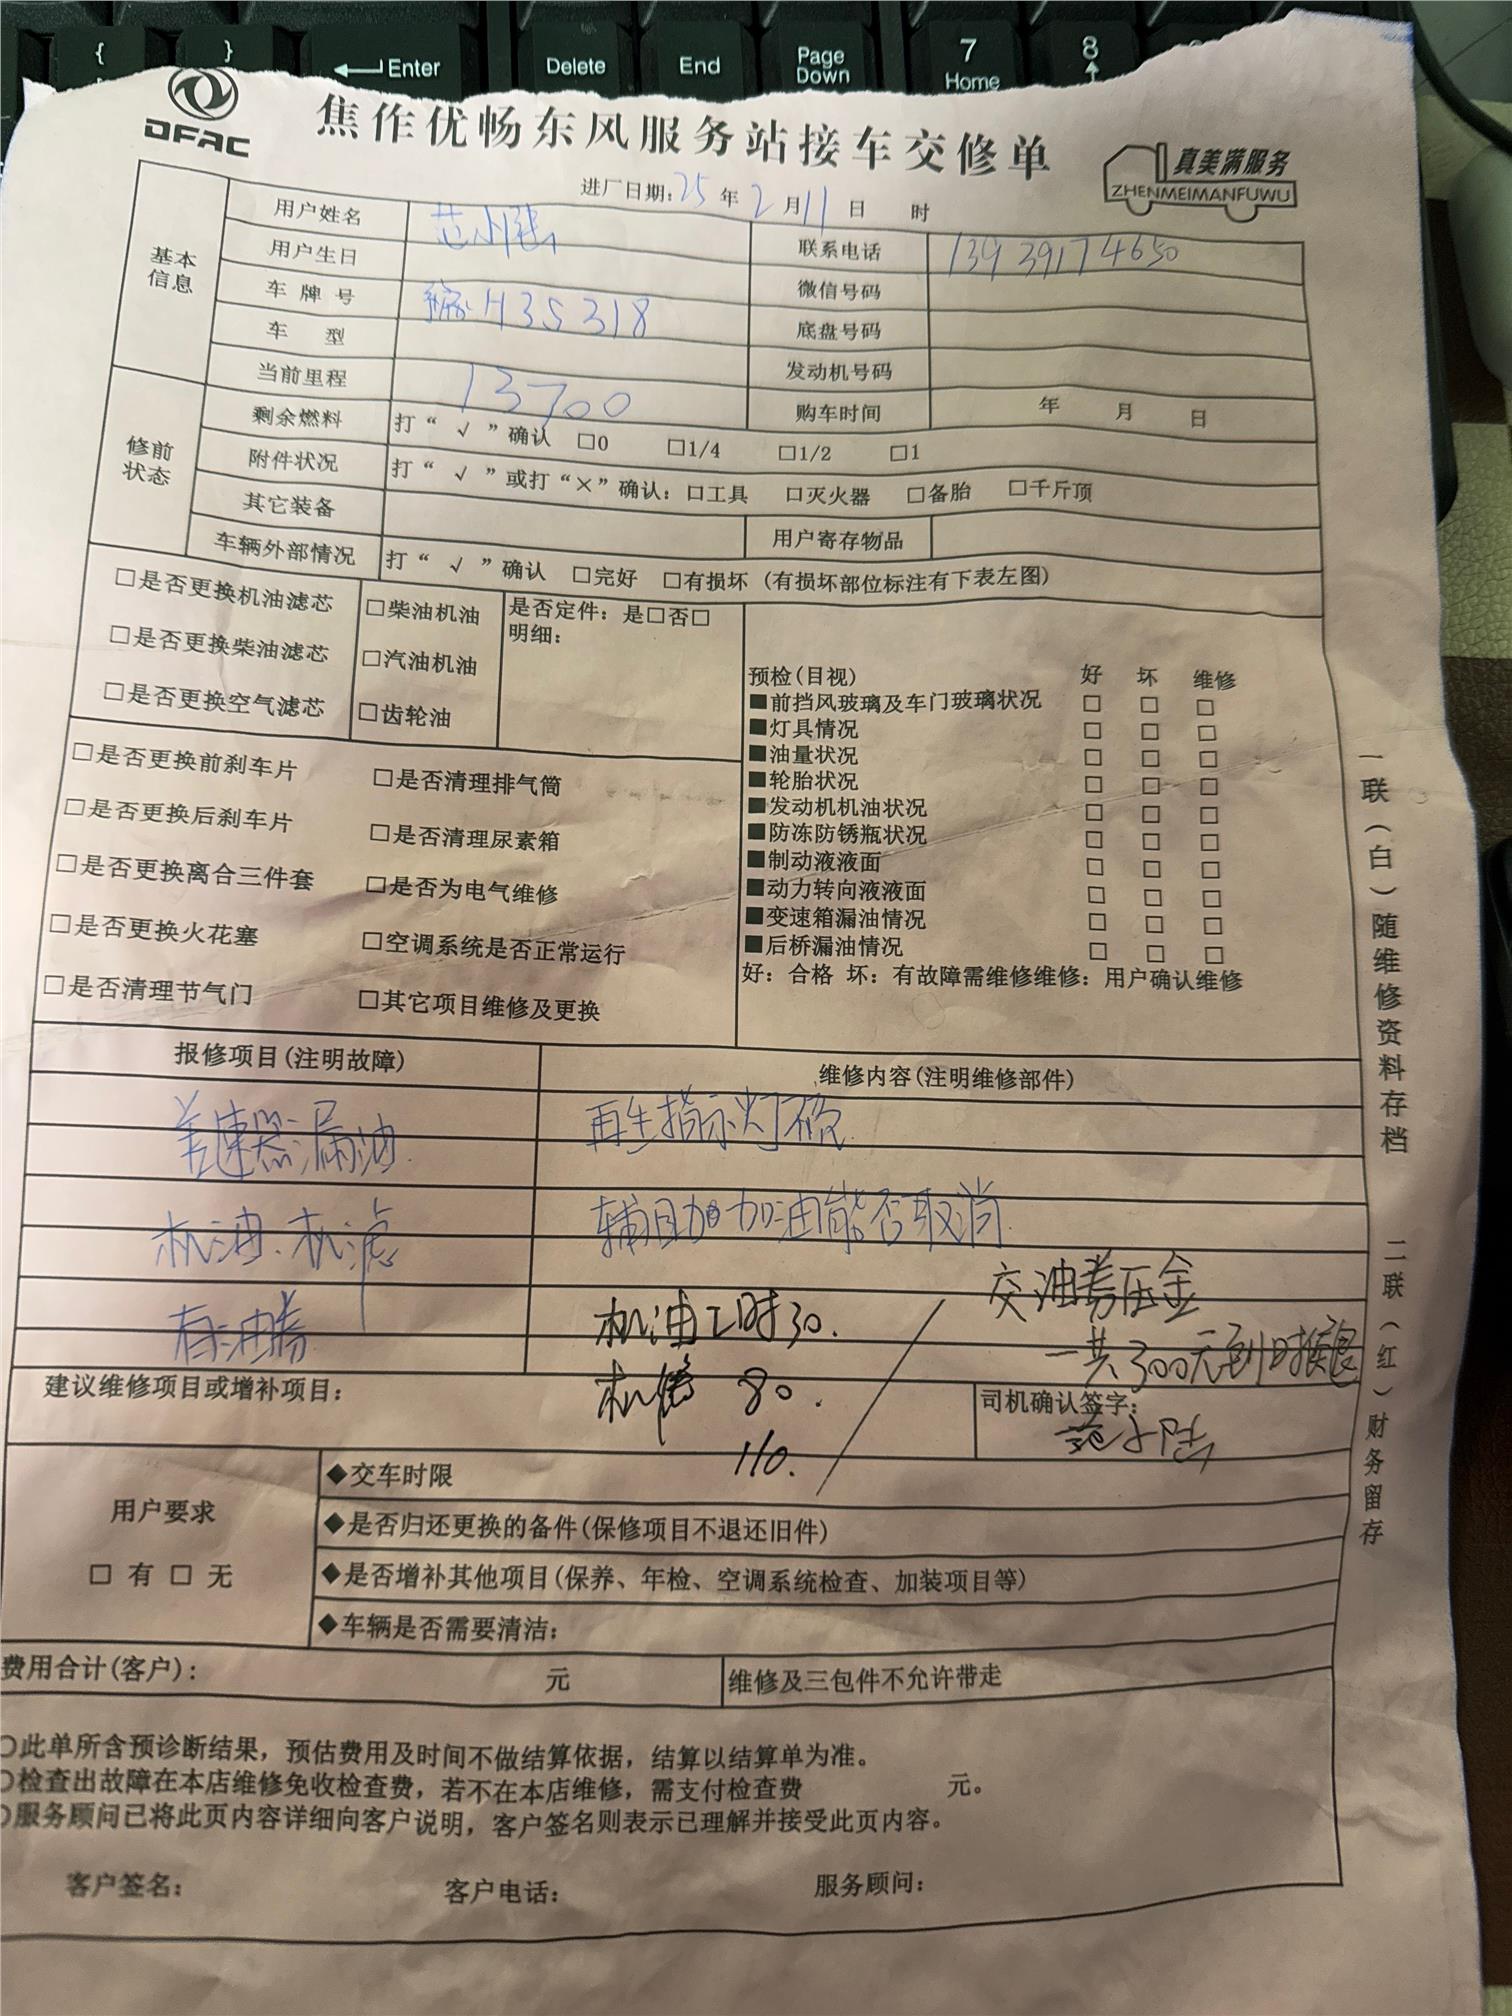 { } Enter Delete End Page Down 7 Home 8
DFAC
焦作优畅东风服务站接车交修单
真美满服务
ZHENMEIMANFUWU
进厂日期:25年2月11日 时
基本信息
用户姓名 范小陆 联系电话 13939174650
用户生日 微信号码
车牌号 豫H35318 底盘号码
车 型 发动机号码
当前里程 13700 购车时间 年 月 日
修前状态
剩余燃料 打“√”确认 □0 □1/4 □1/2 □1
附件状况 打“√”或打“×”确认:□工具 □灭火器 □备胎 □千斤顶
其它装备 用户寄存物品
车辆外部情况 打“√”确认 □完好 □有损坏 (有损坏部位标注有下表左图)
□是否更换机油滤芯 □柴油机油 是否定件: 是□否□
明细:
□是否更换柴油滤芯 □汽油机油
□是否更换空气滤芯 □齿轮油
□是否更换前刹车片 □是否清理排气筒
□是否更换后刹车片 □是否清理尿素箱
□是否更换离合三件套 □是否为电气维修
□是否更换火花塞 □空调系统是否正常运行
□是否清理节气门 □其它项目维修及更换
预检(目视) 好 坏 维修
■前挡风玻璃及车门玻璃状况 □ □ □
■灯具情况 □ □ □
■油量状况 □ □ □
■轮胎状况 □ □ □
■发动机机油状况 □ □ □
■防冻防锈瓶状况 □ □ □
■制动液液面 □ □ □
■动力转向液液面 □ □ □
■变速箱漏油情况 □ □ □
■后桥漏油情况 □ □ □
好: 合格 坏: 有故障需维修维修: 用户确认维修
报修项目(注明故障) 维修内容(注明维修部件)
差速器漏油 再生指示灯
机油.机滤 辅助加油能否取消
有油券 机油工时30. 交油券压金
一共300元到时候退
机滤 80.
110.
建议维修项目或增补项目: 司机确认签字:
范小陆
用户要求
□ 有 □ 无
◆交车时限
◆是否归还更换的备件(保修项目不退还旧件)
◆是否增补其他项目(保养、年检、空调系统检查、加装项目等)
◆车辆是否需要清洁:
费用合计(客户): 元 维修及三包件不允许带走
○此单所含预诊断结果，预估费用及时间不做结算依据，结算以结算单为准。
○检查出故障在本店维修免收检查费，若不在本店维修，需支付检查费 元。
○服务顾问已将此页内容详细向客户说明，客户签名则表示已理解并接受此页内容。
客户签名: 客户电话: 服务顾问:
一联(白)随维修资料存档 二联(红)财务留存